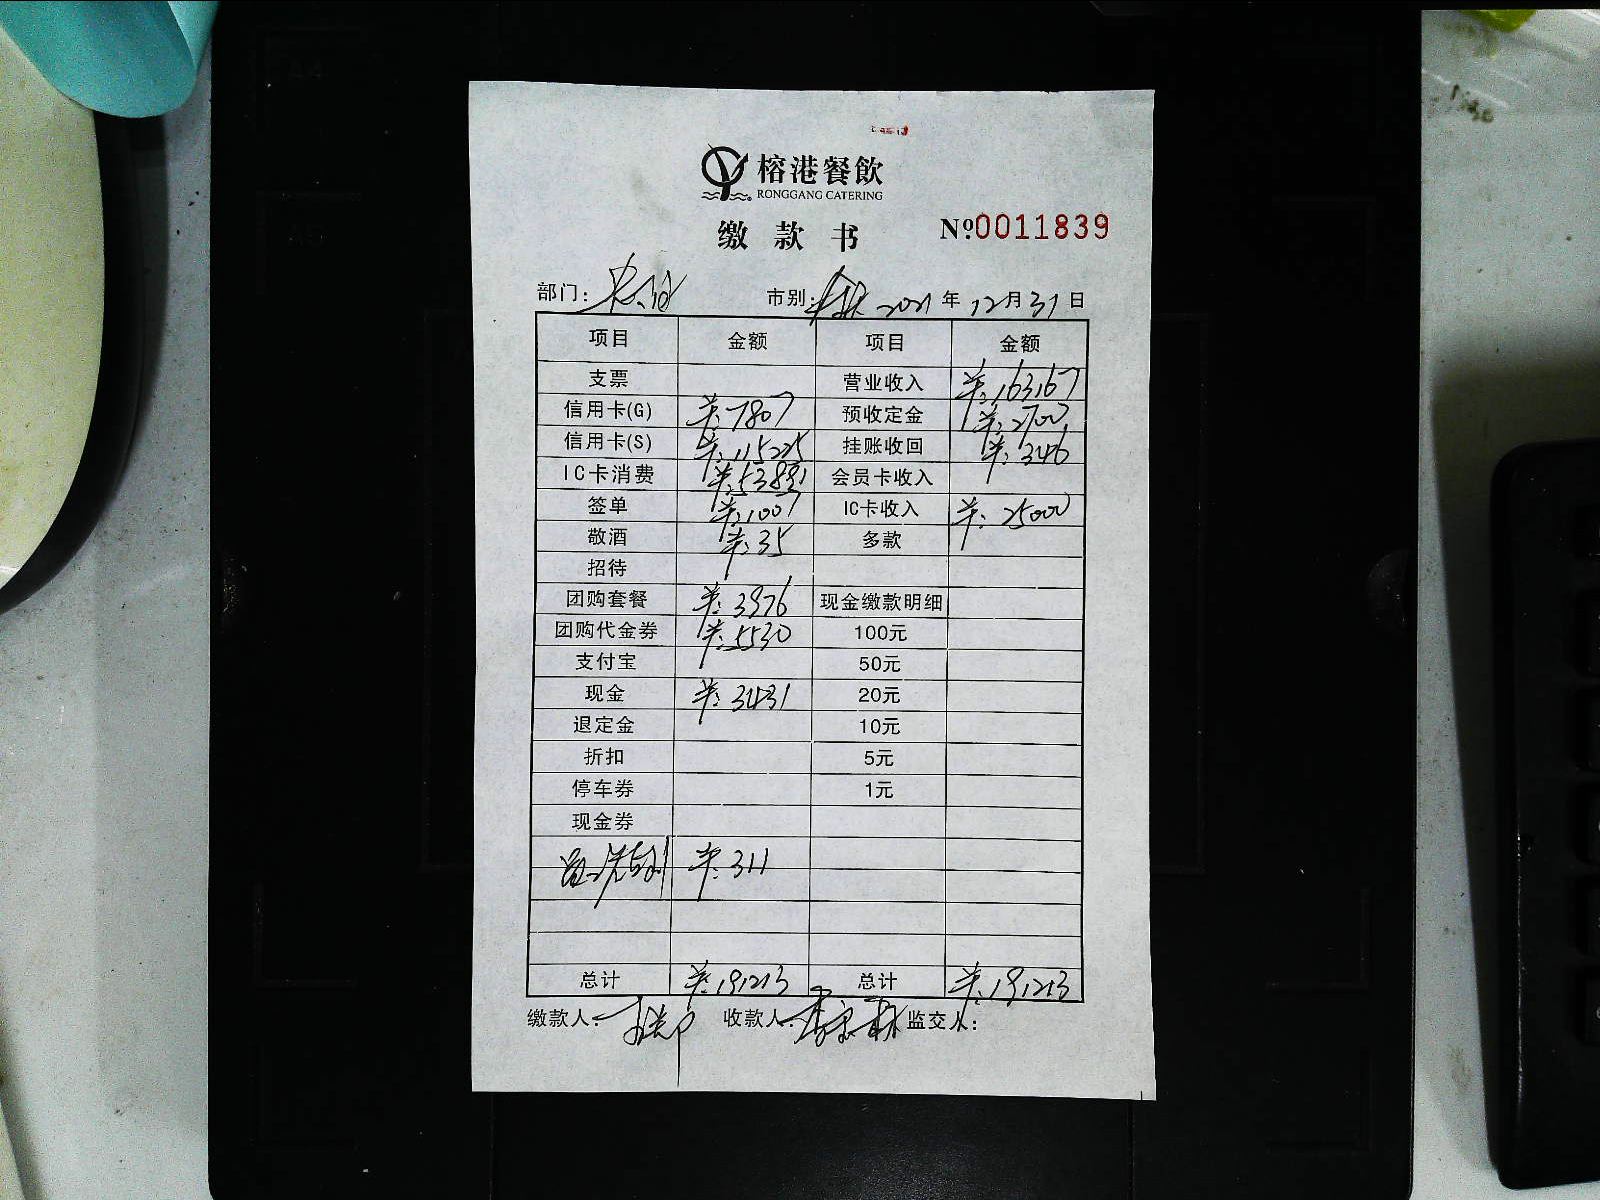 榕港餐飲
RONGGANG CATERING
缴款书 Nº:0011839
部门: 市别: 2021年12月31日
项目 金额 项目 金额
支票 营业收入 ¥:163167
信用卡(G) ¥:7807 预收定金 ¥:2700
信用卡(S) ¥:115225 挂账收回 ¥:346
IC卡消费 ¥:53891 会员卡收入
签单 ¥:1007 IC卡收入 ¥:25000
敬酒 ¥:35 多款
招待
团购套餐 ¥:3976 现金缴款明细
团购代金券 ¥:5530 100元
支付宝 50元
现金 ¥:3431 20元
退定金 10元
折扣 5元
停车券 1元
现金券
¥:311
总计 ¥:191213 总计 ¥:191213
缴款人: 收款人: 监交人: